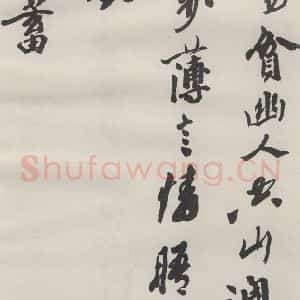 貧幽人共山
薄言情晤
蓄
Shufawang.CN